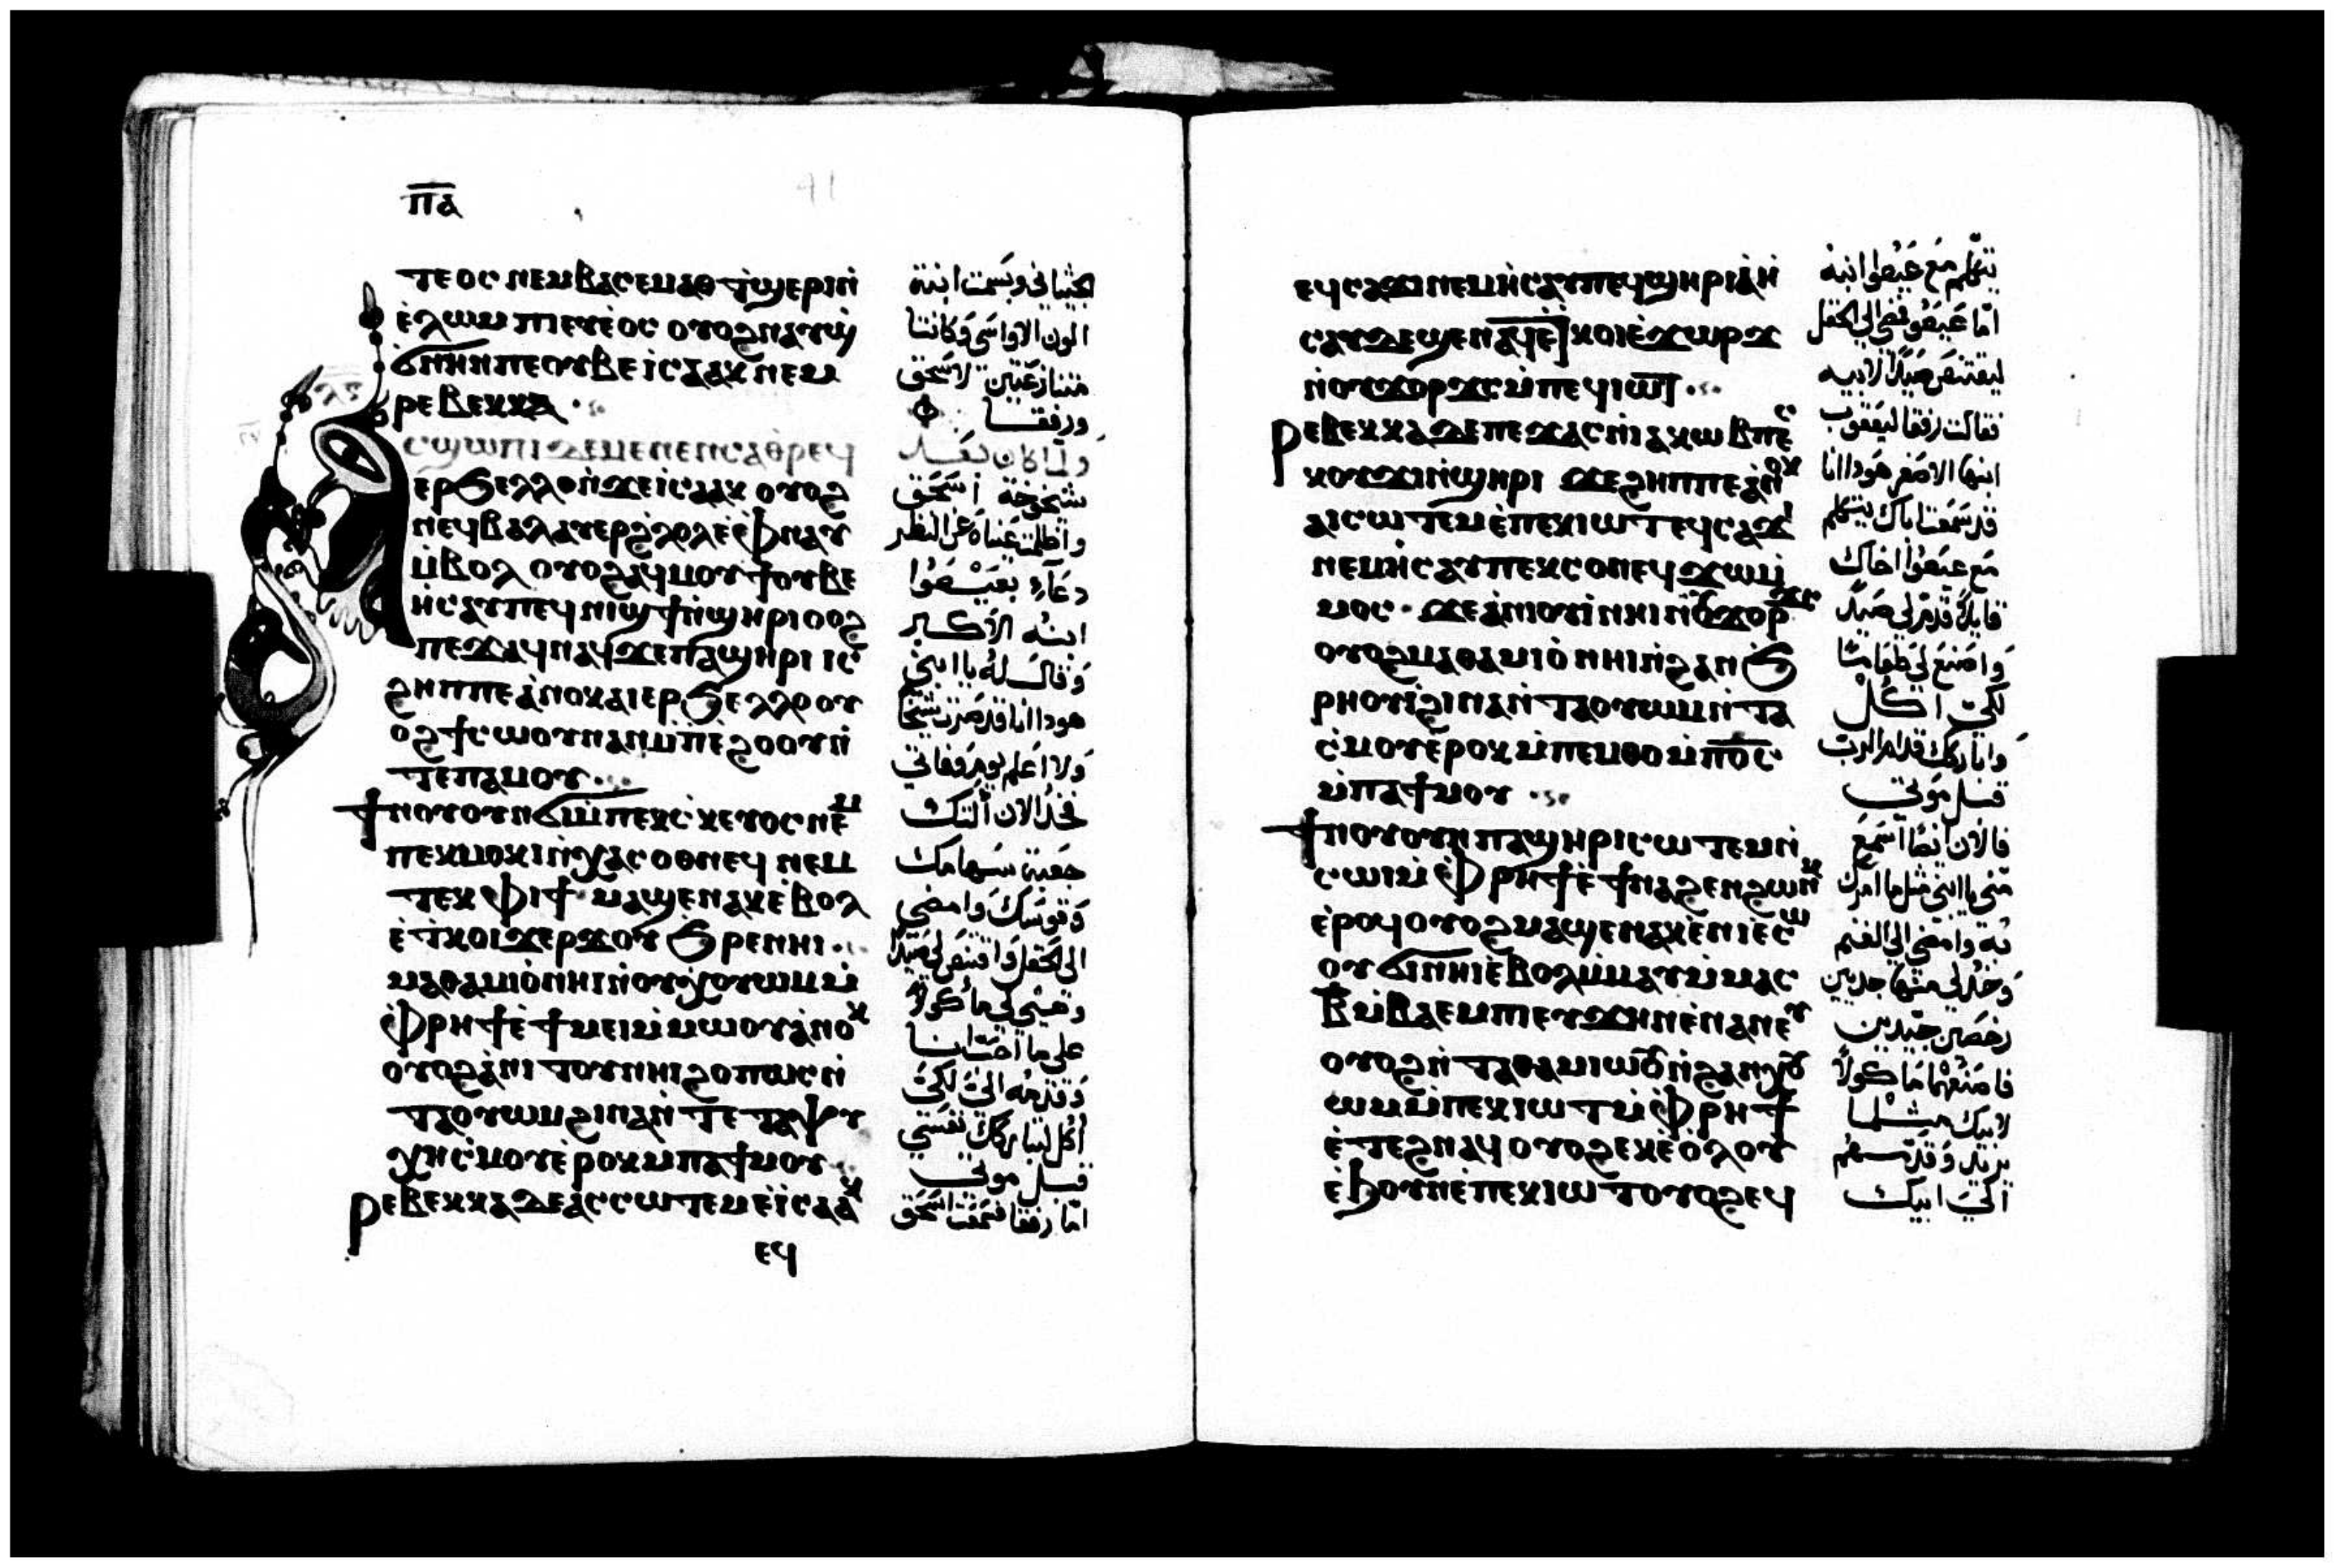 ⲡⲁ
41
ⲧⲉⲟⲥ ⲛⲉⲙ ⲃⲁⲥⲉⲙⲁⲑ ϯϣⲉⲣⲓ ⲛ̀
ⲉ̀ⲗⲱⲙ ⲡⲓⲉⲩⲉⲟⲥ ⲟⲩⲟϩ ⲛⲁⲩϣ̀
ϭⲛⲏⲛ ⲡⲉ ⲟⲩⲃⲉ ⲓⲥⲁⲁⲕ ⲛⲉⲙ
ⲣⲉⲃⲉⲕⲕⲁ
ⲁⲥϣⲱⲡⲓ ⲇⲉ ⲙⲉⲛⲉⲛⲥⲁ ⲑⲣⲉϥ
ⲉⲣϧⲉⲗⲗⲟ ⲛ̀ϫⲉ ⲓⲥⲁⲁⲕ ⲟⲩⲟϩ
ⲛⲉϥⲃⲁⲗ ⲁⲩⲉⲣϩ̀ⲗⲟⲗ ⲉ̀ⲫⲛⲁⲩ
ⲙ̀ⲃⲟⲗ ⲟⲩⲟϩ ⲁϥⲙⲟⲩϯ ⲟⲩⲃⲉ
ⲏ̀ⲥⲁⲩ ⲡⲉϥⲛⲓϣϯ ⲛ̀ϣⲏⲣⲓ ⲟⲟϩ
ⲡⲉϫⲁϥ ⲛⲁϥ ϫⲉ ⲡⲁϣⲏⲣⲓ ⲓⲥ
ϩⲏⲡⲡⲉ ⲁ̀ⲛⲟⲕ ⲁⲓⲉⲣϧⲉⲗⲗⲟ ⲟⲩ
ⲟϩ ϯⲥⲱⲟⲩⲛ ⲁⲛ ⲙ̀ⲡⲉ̀ϩⲟⲟⲩ ⲛ̀
ⲧⲉ ⲡⲁⲙⲟⲩ
ϯⲛⲟⲩ ⲟⲩⲛ ϭⲓ ⲙ̀ⲡⲉⲕⲥⲕⲉⲩⲟⲥ ⲛⲉⲙ
ⲡⲉⲕⲙⲟⲕ ⲓⲛ̀ϫⲁⲥⲟⲑⲛⲉϥ ⲛⲉⲙ
ⲧⲉⲕⲫⲓϯ ⲙⲁϣⲉ ⲛⲁⲕ ⲉ̀ⲃⲟⲗ
ⲉ̀ⲧⲕⲟⲓ ϫⲉⲣϫⲟⲩ ϧⲣⲉ ⲛⲏⲓ
ⲙⲁⲑⲁⲙⲓⲟ̀ ⲛⲏⲓ ⲛ̀ⲟⲩϫ̀ⲟⲩⲱⲙ ⲙ̀
ⲫⲣⲏϯ ⲉ̀ϯⲙⲉⲓ ⲙ̀ⲙⲱⲟⲩ ⲁ̀ⲛⲟⲕ
ⲟⲩⲟϩ ⲁ̀ⲛⲓⲧⲟⲩ ⲛⲏⲓ ϩⲟⲡⲱⲥ ⲛ̀
ⲧⲁⲟⲩⲱⲙ ϩⲓⲛⲁ ⲛ̀ⲧⲉ ⲧⲁⲯⲩ
ⲭⲏ ⲥ̀ⲙⲟⲩ ⲉ̀ⲣⲟⲕ ⲙⲡⲁϯⲙⲟⲩ
ⲣⲉⲃⲉⲕⲕⲁ ⲇⲉ ⲁ̀ⲥⲥⲱⲧⲉⲙ ⲉ̀ⲓ̀ⲥⲁⲁⲕ
ⲉϥ
الحيثاني وبسمت ابنة
الون الاواسي وكانتا
متنازعتين لاسحق
ورفقا
ولما كان بعد
شيخوخة اسحق
واظلمت عيناه عن النظر
دعا بعيسوا
ابنه الاكبر
وقال له يا ابني
هوذا انا قد صرت شيخا
ولا اعلم يوم وفاتي
فخذ الان آلتك
جعبة سهامك
وقوسك وامضي
الى الحقل واقتنص لي صيدا
وهيئ لي ماكولا
على ما احب انا
وقدمه الي لكي
آكل لتباركك نفسي
قبل موتي
اما رفقا فسمعت اسحق
ⲉϥⲥⲁϫⲓ ⲛⲉⲙ ⲏ̀ⲥⲁⲩ ⲡⲉϥϣⲏⲣⲓ ⲁ̀ⲏ̀
ⲥⲁⲩ ⲇⲉ ϣⲉ ⲛⲁϥ ⲉ̀ⲧⲕⲟⲓ ⲉ̀ϫⲱⲣϫ
ⲛ̀ⲟⲩϫⲟⲣϫⲥ ⲙ̀ⲡⲉϥⲓⲱⲧ
ⲣⲉⲃⲉⲕⲕⲁ ⲇⲉ ⲡⲉϫⲁⲥ ⲛ̀ⲓⲁⲕⲱⲃ ⲡⲉⲥ
ⲕⲟⲩϫⲓ ⲛ̀ϣⲏⲣⲓ ϫⲉ ϩⲏⲡⲡⲉ ⲁ̀ⲛⲟⲕ
ⲁⲓⲥⲱⲧⲉⲙ ⲉ̀ⲡⲉⲕⲓⲱⲧ ⲉϥⲥⲁϫⲓ
ⲛⲉⲙ ⲏ̀ⲥⲁⲩ ⲡⲉⲕⲥⲟⲛ ⲉϥϫⲱ ⲙ̀
ⲙⲟⲥ ϫⲉ ⲁ̀ⲛⲓⲟⲩⲓ̀ ⲛⲏⲓ ⲛ̀ⲟⲩϫⲟⲣϫⲥ
ⲟⲩⲟϩ ⲙⲁⲑⲁⲙⲓⲟ̀ ⲛⲏⲓ ⲛ̀ϩⲁⲛϧ
ⲣⲏⲟⲩⲓ̀ ϩⲓⲛⲁ ⲛ̀ⲧⲁⲟⲩⲱⲙ ⲛ̀ⲧⲁ
ⲥ̀ⲙⲟⲩ ⲉ̀ⲣⲟⲕ ⲙ̀ⲡⲉⲙⲑⲟ ⲙ̀ⲡⲟ̅ⲥ̅
ⲙ̀ⲡⲁϯⲙⲟⲩ
ϯⲛⲟⲩ ⲟⲩⲛ ⲡⲁϣⲏⲣⲓ ⲥⲱⲧⲉⲙ ⲛ̀
ⲥⲱⲓ ⲙ̀ⲫⲣⲏϯ ⲉ̀ϯⲛⲁϩⲉⲛϩⲱⲛⲕ
ⲉ̀ⲣⲟϥ ⲟⲩⲟϩ ⲙⲁϣⲉ ⲛⲁⲕ ⲉ̀ⲛⲓⲉ̀ⲥⲱ
ⲟⲩ ϭⲓ ⲛⲏⲓ ⲉ̀ⲃⲟⲗ ⲙ̀ⲙⲁⲩ ⲙ̀ⲙⲁⲥ
ⲃ̅ ⲙ̀ⲃⲁⲉⲙⲡⲓ ⲉⲩϫⲏⲛ ⲉ̀ⲛⲁⲛⲉⲩ
ⲟⲩⲟϩ ⲛ̀ⲧⲁⲑⲁⲙⲓⲱⲟⲩ ⲛ̀ϩⲁⲛϫ̀ⲟⲩ
ⲱⲙ ⲙ̀ⲡⲉⲕⲓⲱⲧ ⲙ̀ⲫⲣⲏϯ
ⲉ̀ⲧⲉϩⲛⲁϥ ⲟⲩⲟϩ ⲉⲕⲉⲟ̀ⲗⲟⲩ
ⲉ̀ϧⲟⲩⲛ ⲉ̀ⲡⲉⲕⲓⲱⲧ ⲟⲩⲟϩ ⲉϥ
يتكلم مع عيسوا ابنه
اما عيسوا فمضى الى الحقل
ليقتنص صيدا لابيه
فقالت رفقا ليعقوب
ابنها الاصغر هوذا انا
قد سمعت اباك يتكلم
مع عيسوا اخاك
قايلا قدم لي صيدا
واصنع لي طعاما
لكي آكل
واباركك قدام الرب
قبل موتي
فالان ايضا اسمع
مني يا ابني مثل ما آمرك
به وامضي الى الغنم
وخذ لي منها جديين
رخصين جيدين
فاصنعهما ماكولا
لابيك مثلما
يريد وقدمهم
الى ابيك